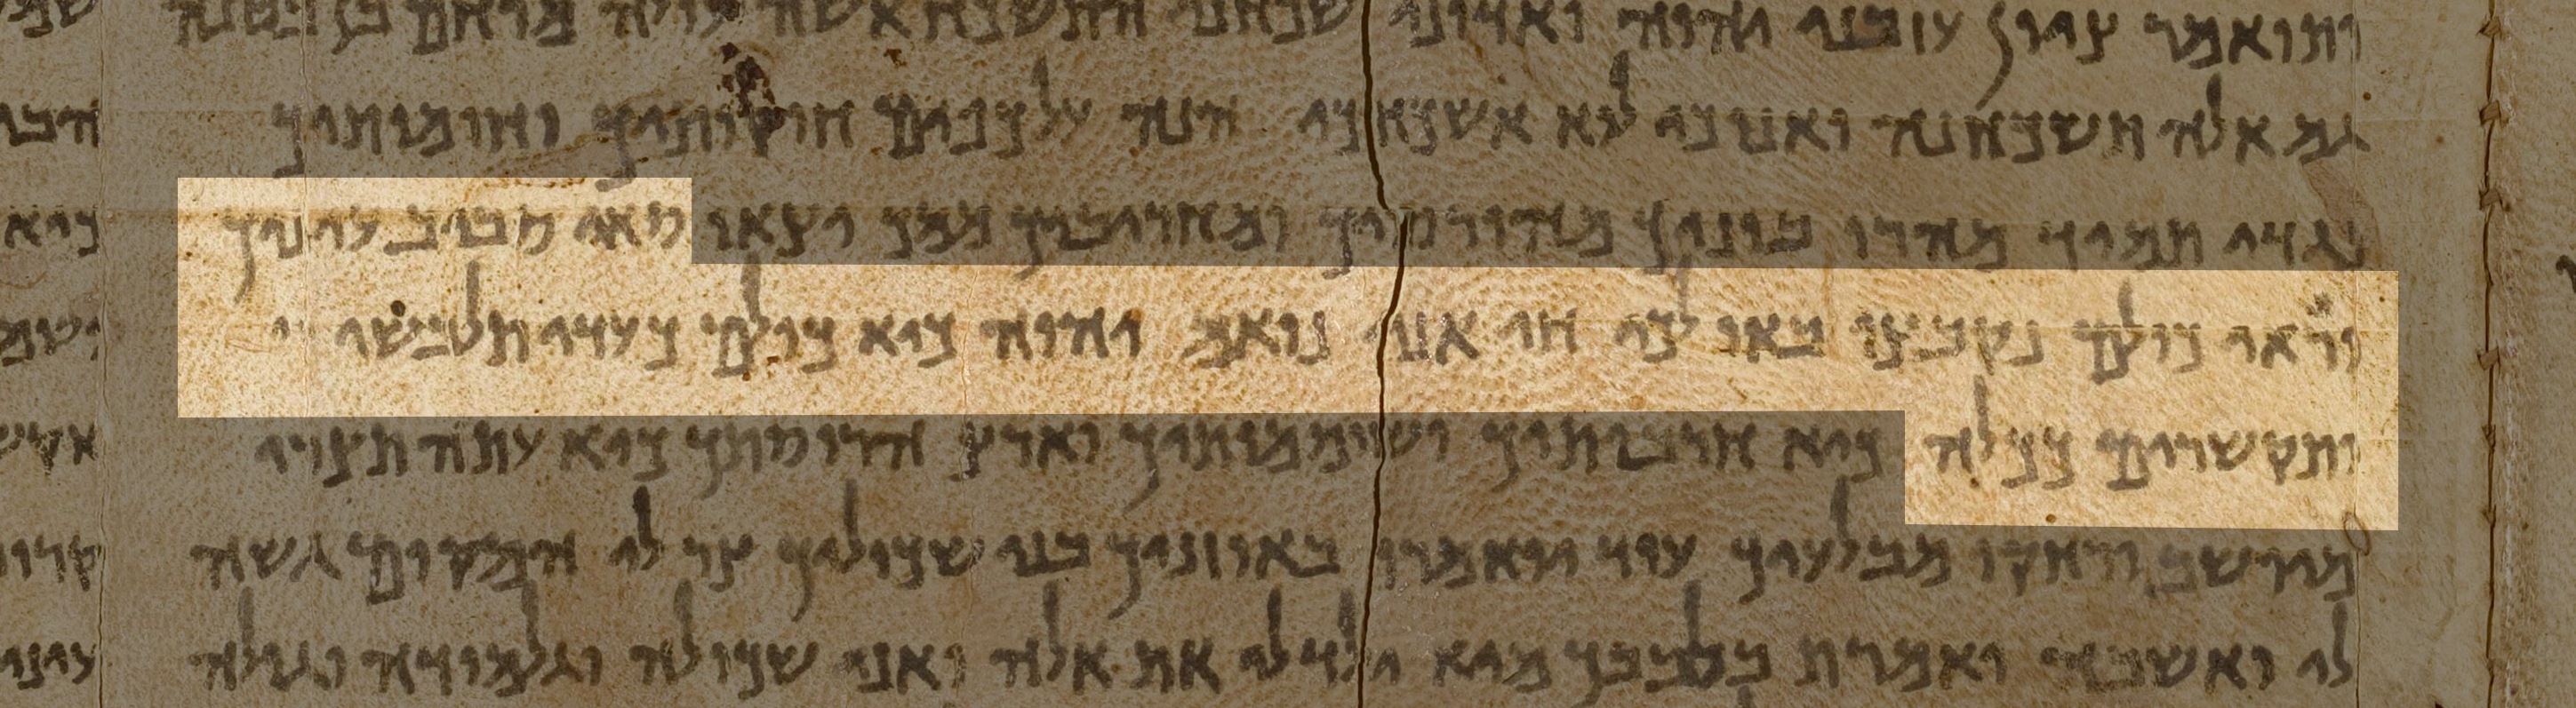 ותואמר ציון עזבני יהוה ואדוני שכחני התשכח אשה עולה מרחם בן בטנה
גם אלה תשכחנה ואנוכי לוא אשכחכי הנה על כפים חוקותיך וחומותיך
נגדי תמיד מהרו בוניך מהורסיך ומחריביך ממך יצאו שאי סביב עיניך
וראי כולם נקבצו באו לכי חי אני נואם יהוה כיא כולם כעדי תלבשי
ותקשרים ככלה כיא חורבותיך ושוממותיך וארץ הריסותך כיא עתה תצרי
מיושב ורחקו מבלעיך עוד יואמרו באוזניך בני שכוליך צר לי המקום גשה
לי ואשבה ואמרת בלבבך מיא ילד לי את אלה ואני שכולה וגלמודה וגולה